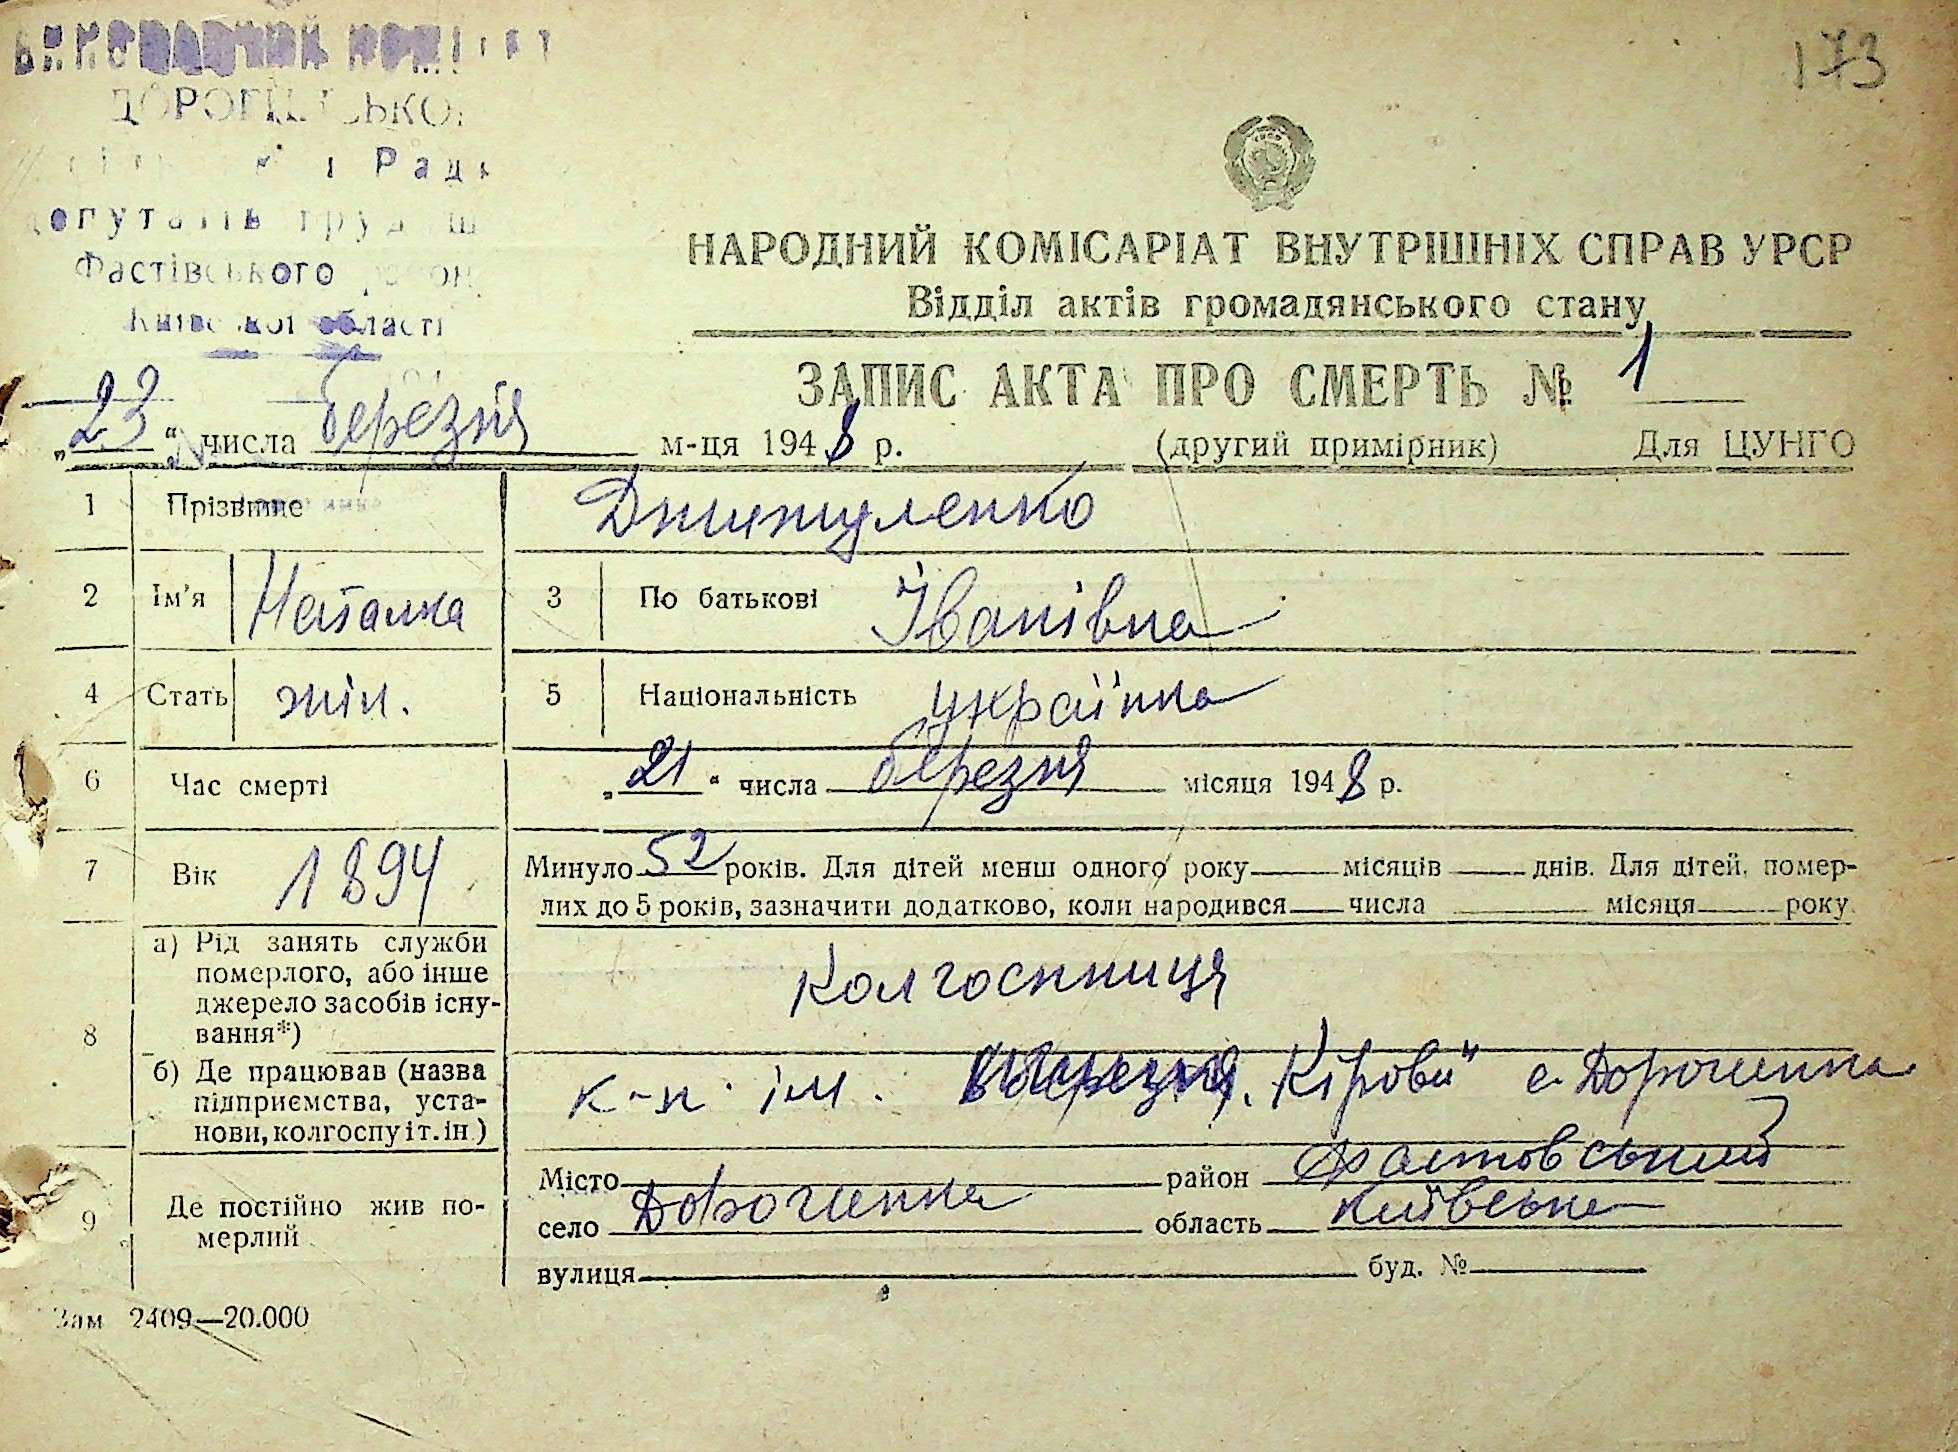 173
ДОРОГИНСЬКОЇ
Ради
депутатів трудящ
Фастівського район
Київської області
НАРОДНИЙ КОМІСАРІАТ ВНУТРІШНІХ СПРАВ УРСР
Відділ актів громадянського стану
ЗАПИС АКТА ПРО СМЕРТЬ № 1
„23“ числа березня м-ця 1948 р. (другий примірник) Для ЦУНГО
1 Прізвище
2 Ім'я Наталка 3 По батькові Іванівна
4 Стать жін. 5 Національність українка
6 Час смерті „21“ числа березня місяця 1948 р.
7 Вік 1894 Минуло 52 років. Для дітей менш одного року місяців днів. Для дітей, помер-
лих до 5 років, зазначити додатково, коли народився числа місяця року
8 а) Рід занять служби
померлого, або інше
джерело засобів існу-
вання*)
колгоспниця
б) Де працював (назва
підприємства, уста-
нови, колгоспу і т. ін.)
к-п ім. Кірова" с. Дорогинка
9 Де постійно жив по-
мерлий
Місто район Фастовський
село Дорогинка область Київська
вулиця буд. №
Зам 2409—20.000